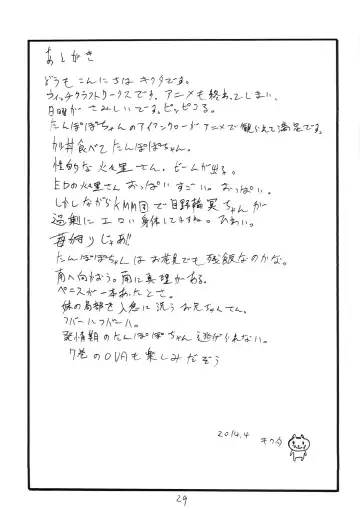 あとがき
どうもこんにちはキクタです。
ウィッチクラフトワークスです、アニメも終わってしまい、
日曜がさみしいです。ピッピコる。
たんぽぽちゃんのアイアンクローがアニメで観られて満足です。
カツ丼食べてたんぽぽちゃん。
性的な火々里さん。ビームが出る。
ヒロの火々里さんおっぱいすごい。おっぱい。
しかしながらKMM団で目野輪冥ちゃんが
過剰にエロい身体してますね。ひわい。
苺狩りじゃあ!
たんぽぽちゃんはお花見でも残飯なのかな。
南へ向かおう。南に真理がある。
ペニスが一本あったとさ。
体の局部を入念に洗うお兄ちゃんさん。
フバーハフバーハ。
発情期のたんぽぽちゃん逃げられない。
7巻のOVAも楽しみだぞう
2014.4 キクタ
29